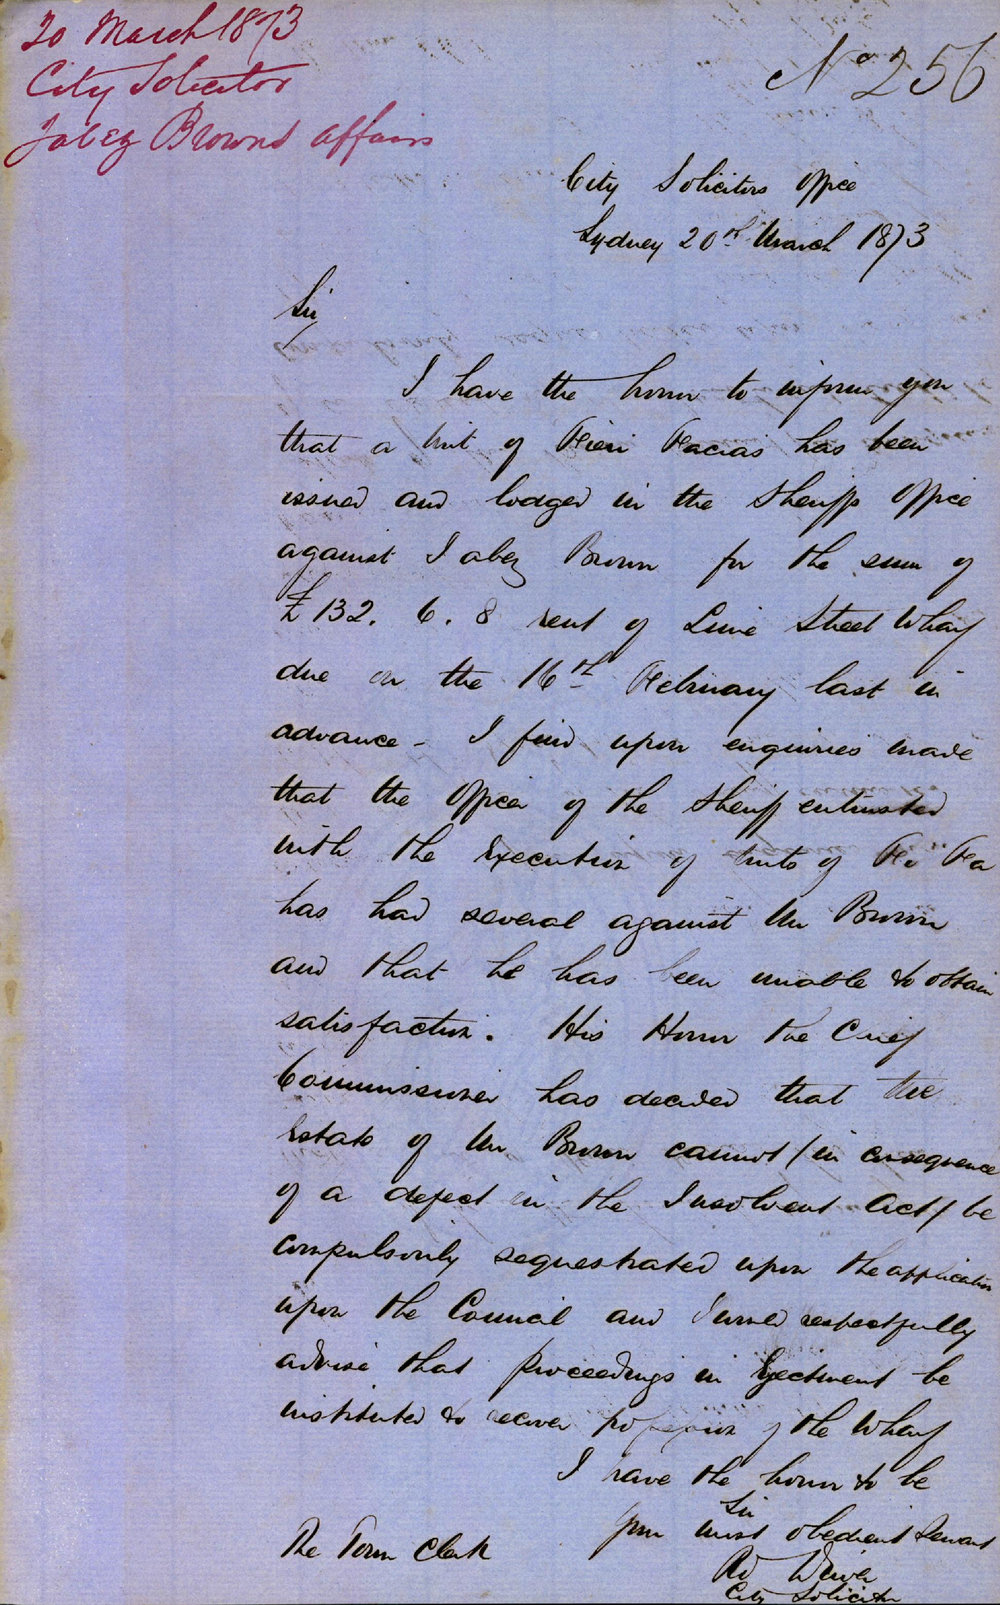 20 March 1873
City Solicitor
Jabez Browns affairs
No 256
City Solicitors Office
Sydney 20th March 1873
Sir
I have the honor to inform you
that a Writ of Fieri Facias has been
issued and lodged in the Sheriffs Office
against Jabez Brown for the sum of
£132. 6. 8 rent of Lime Street Wharf
due on the 16th February last in
advance - I find upon enquiries made
that the Officer of the Sheriff entrusted
with the Execution of Writs of Fi Fa
has had several against Mr Brown
and that he has been unable to obtain
satisfaction. His Honor the Chief
Commissioner has decided that the
Estate of Mr Brown cannot / in consequence
of a defect in the Insolvent Act / be
compulsorily sequestrated upon the application
upon the Council and I would respectfully
advise that proceedings in Ejectment be
instituted to recover possession of the Wharf
I have the honor to be
Sir
your most obedient Servant
City Solicitor
The Town Clerk